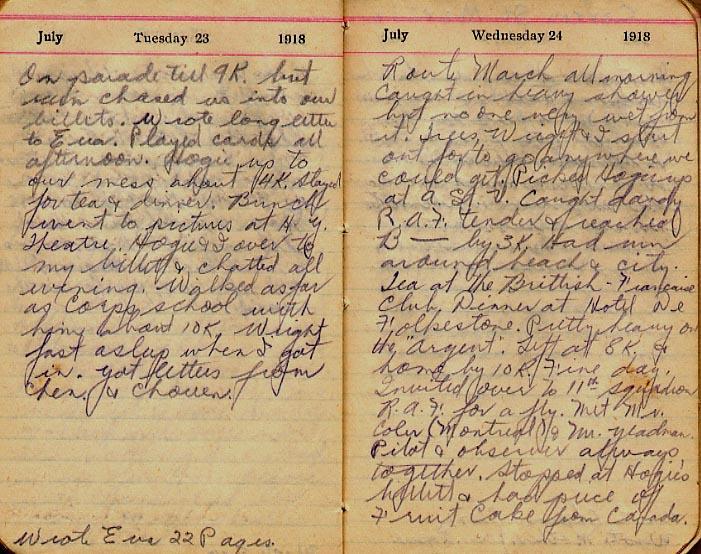 July Tuesday 23 1918
On parade till 9K. but
rain chased us into our
billets. Wrote long letter
to Eva. Played cards all
afternoon. Hogie up to
our mess about 4K. Stayed
for tea & dinner. Bunch
went to pictures at H. Y.
Theatre. Hogie & I over to
my billet & chatted all
evening. Walked as far
as Corps school with
him about 10K. Wright
fast asleep when I got
in. Got letters from
Chen. & Chowen.
Wrote Eva 22 Pages.
July Wednesday 24 1918
Route March all morning
Caught in heavy shower
but no one very wet from
it. Trees, Wright & I start
out for to go anywhere we
could get. Picked Hogie up
at A. S. Caught dandy
R.A.F. tender & reached
B— by 3K. Had run
around beach & city.
Tea at the Brittish-Francaise
Club. Dinner at Hotel De
Folkestone. Pretty heavy on
the "argent". Left at 8K. &
home by 10K. Fine day.
Invited over to 11th squadron
R.A.F. for a fly. Met Mr.
Coler (Montreal) & Mr. Yeadman.
Pilot & observer always
together. Stopped at Hogie's
billet & had piece of
Fruit Cake from Canada.